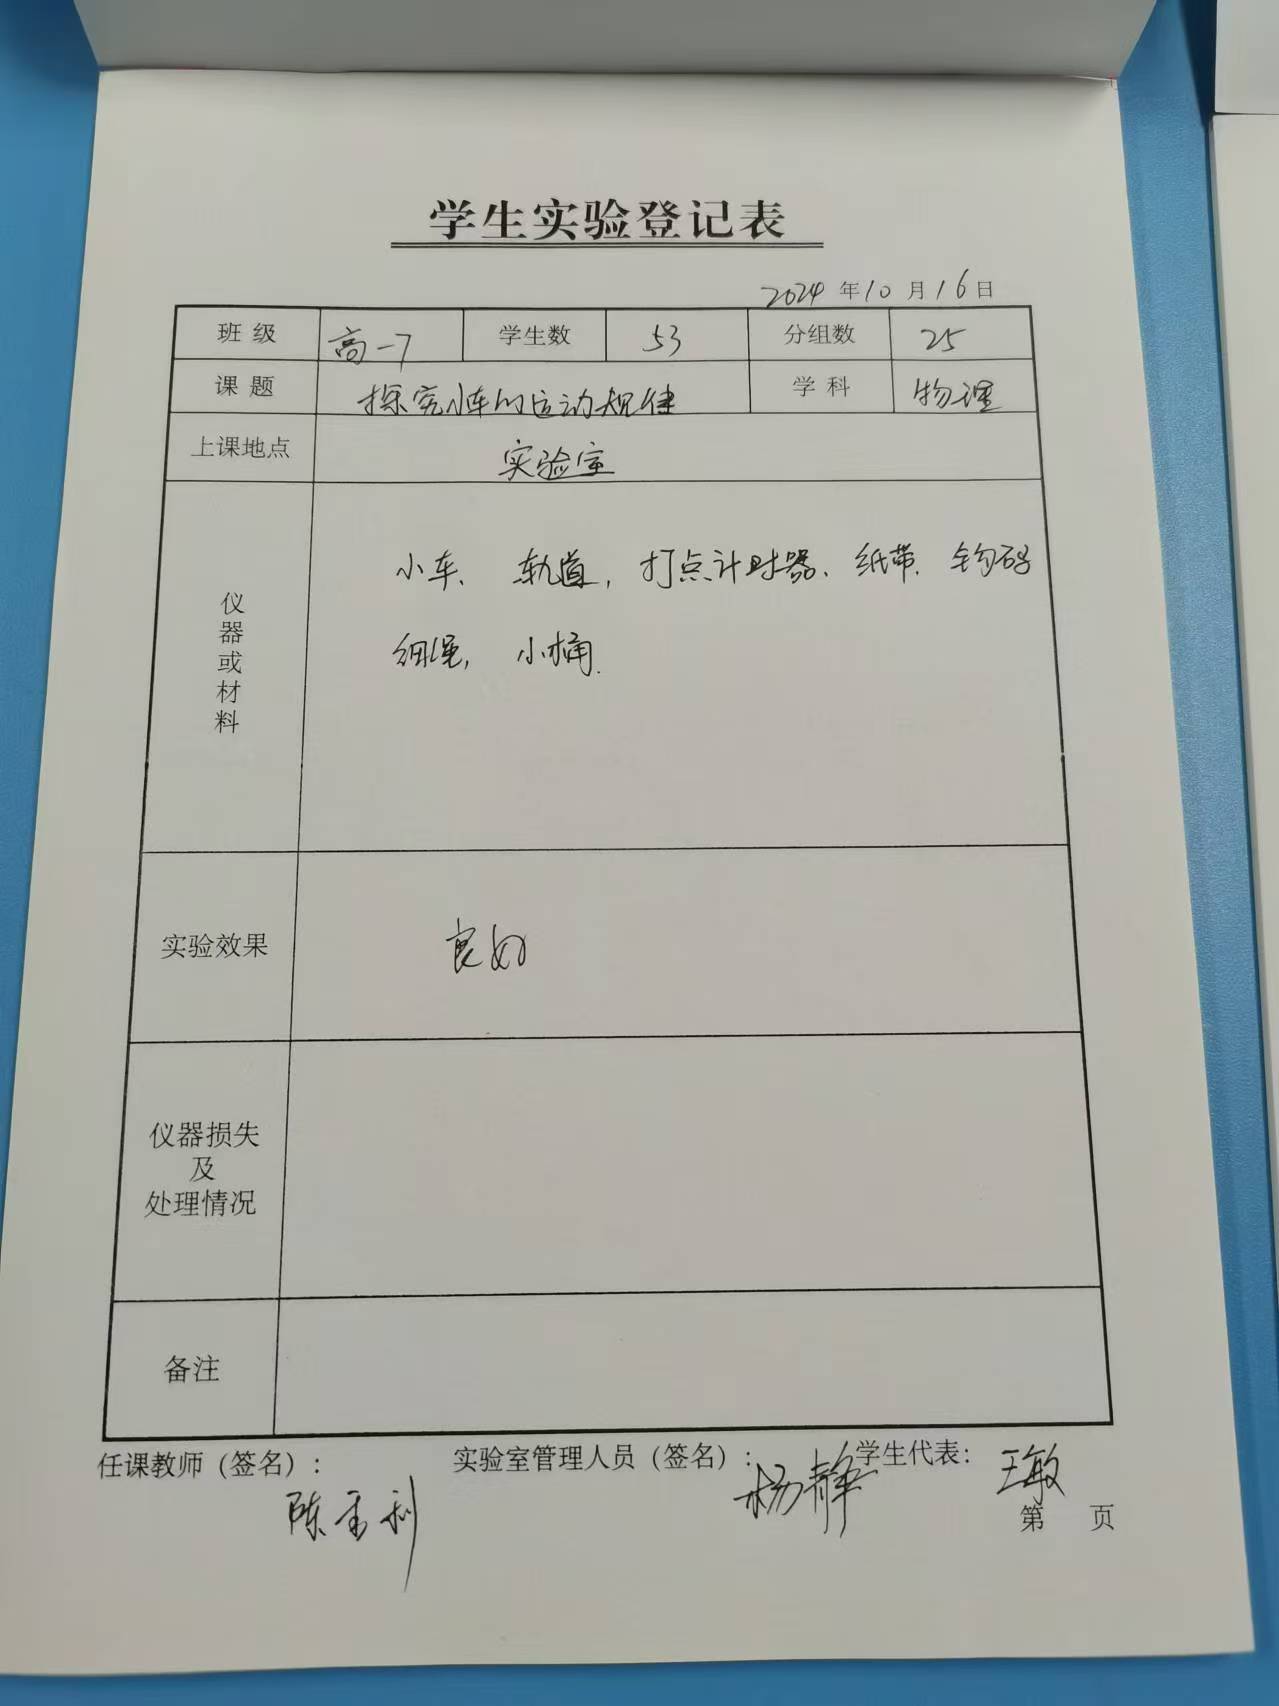 学生实验登记表
2024年10月16日
班级 高一7 学生数 53 分组数 25
课题 探究小车的运动规律 学科 物理
上课地点 实验室
仪器或材料 小车、轨道,打点计时器、纸带、钩码
细绳,小桶.
实验效果 良好
仪器损失
及
处理情况
备注
任课教师(签名): 实验室管理人员(签名): 杨静 学生代表: 王敏
陈 利
第 页